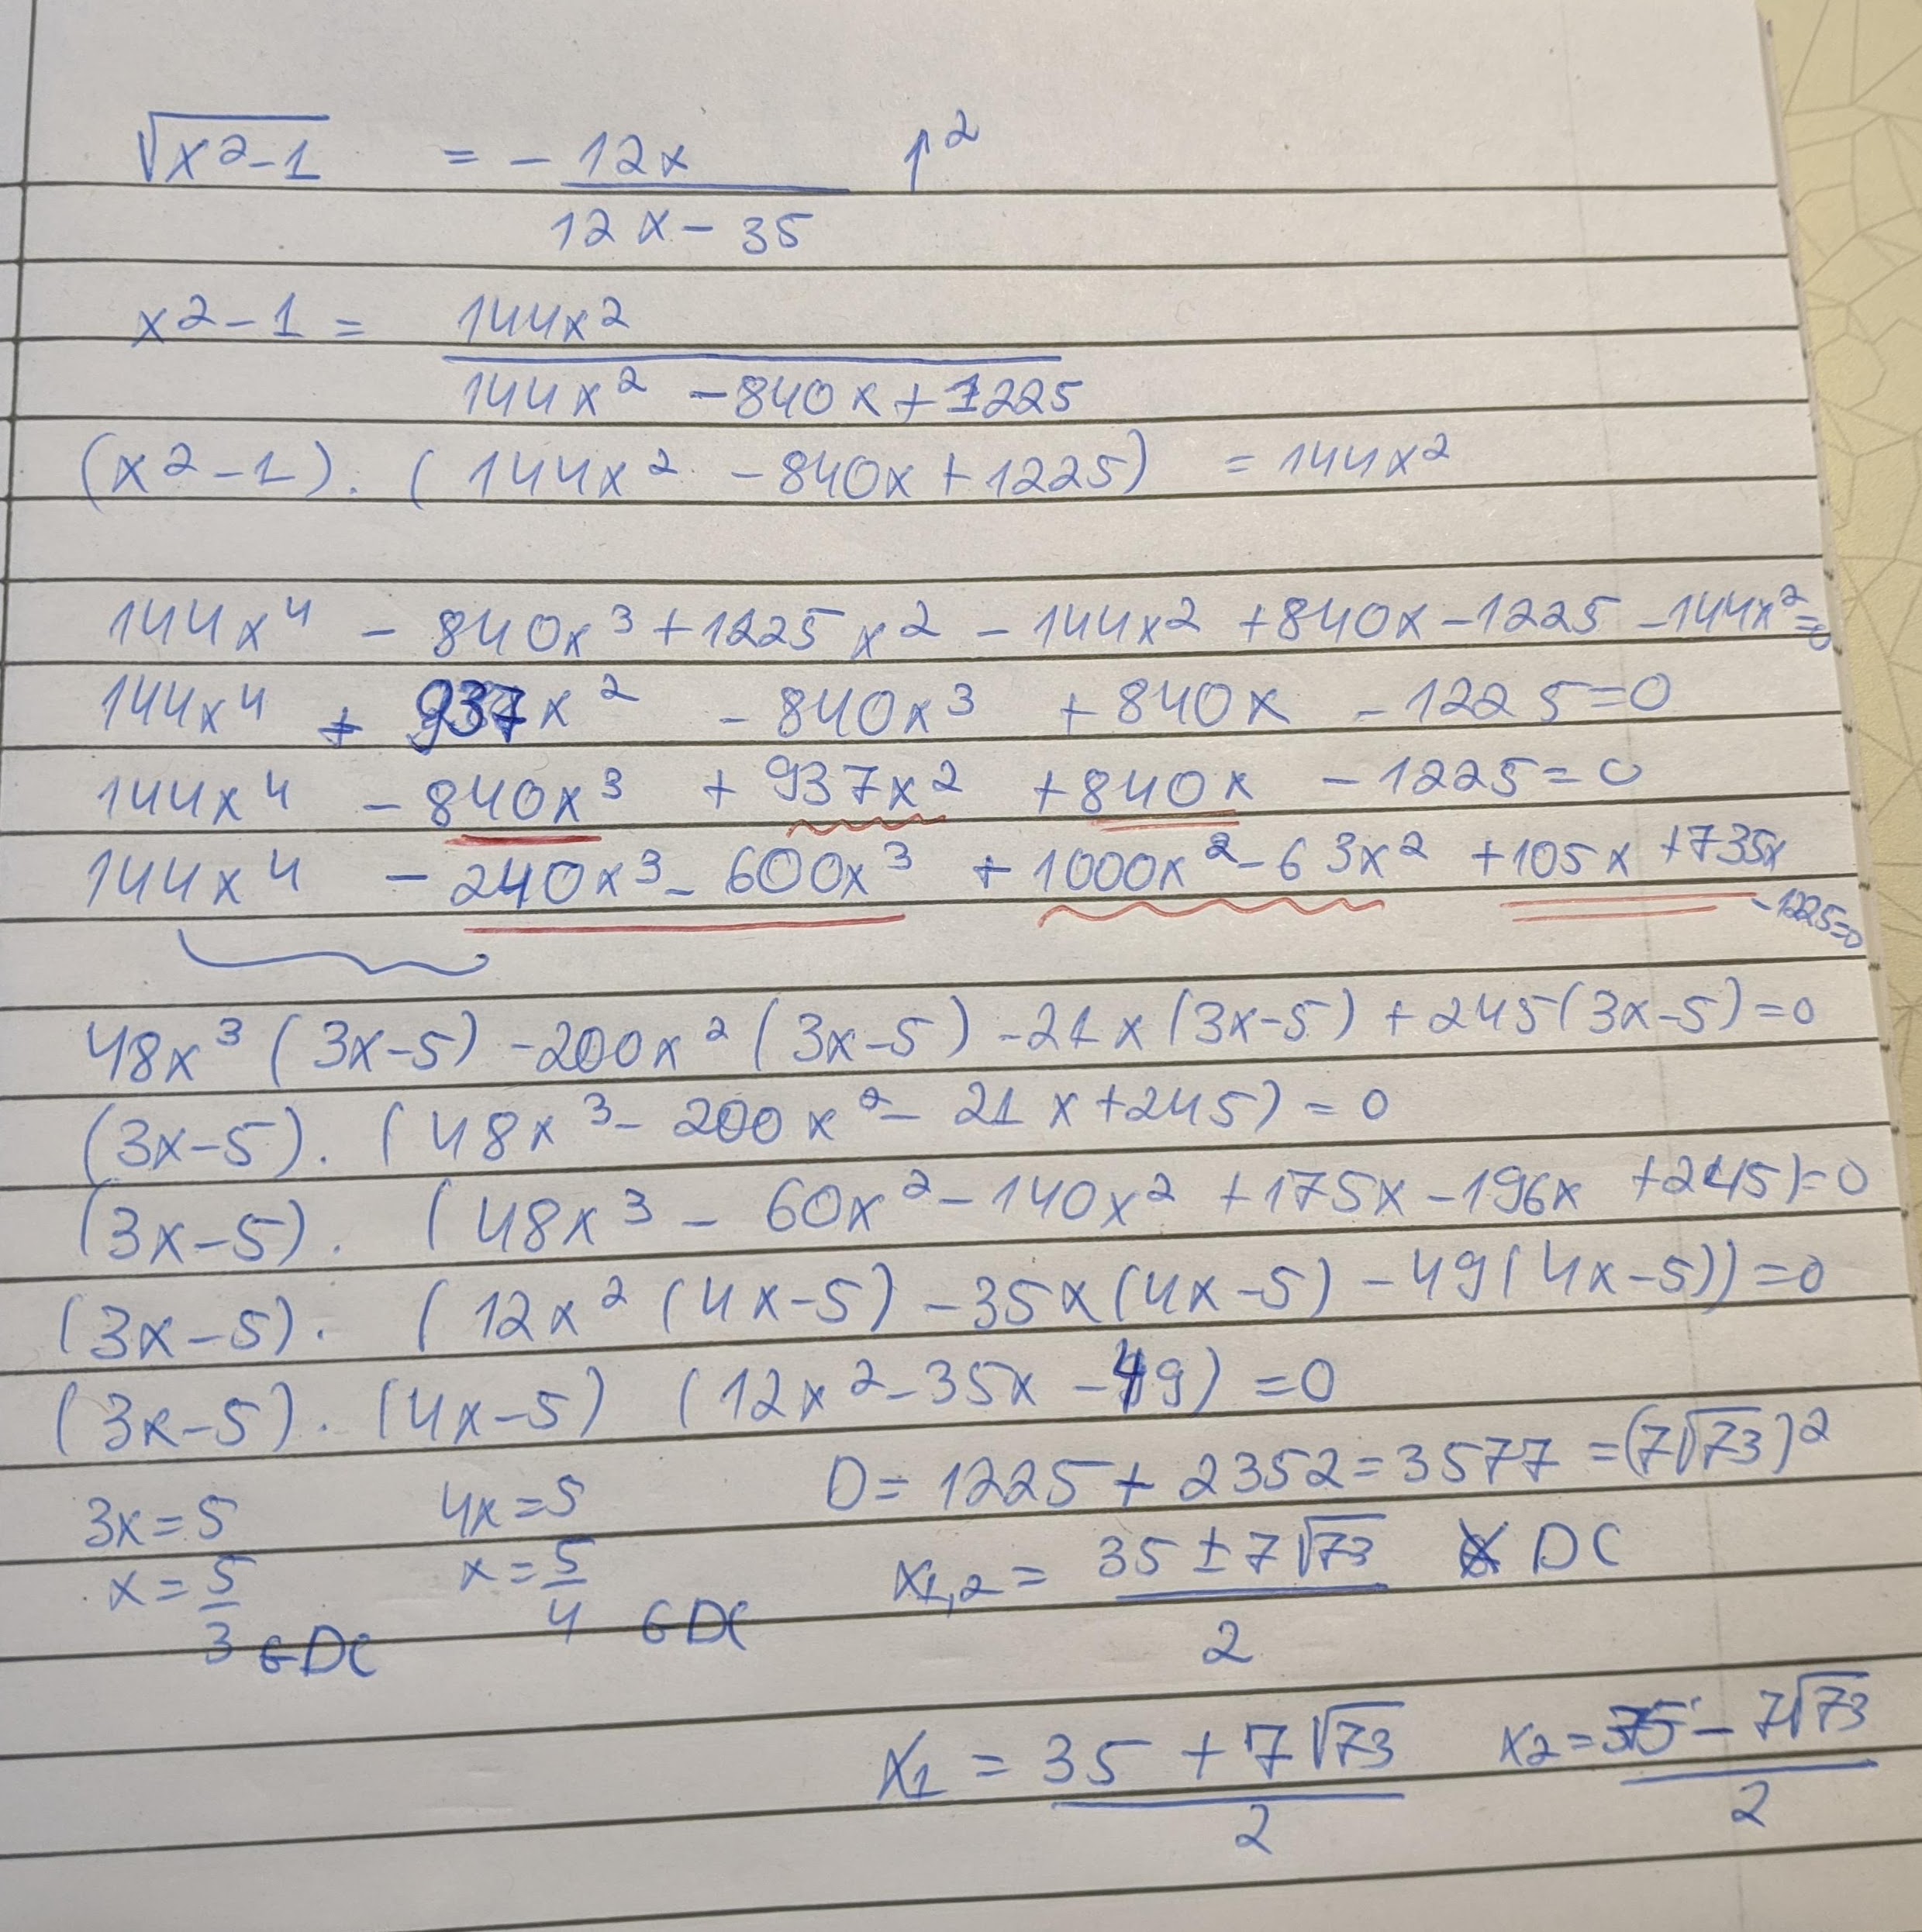 √(x²-1) = - 12x/(12x-35) ↑²
x²-1 = 144x²/(144x² -840x+1225)
(x²-1). (144x² -840x+1225) = 144x²
144x⁴ - 840x³+1225x² - 144x² +840x-1225 -144x²=0
144x⁴ + 937x² - 840x³ +840x - 1225=0
144x⁴ - 840x³ + 937x² +840x - 1225=0
144x⁴ - 240x³- 600x³ +1000x²-63x² +105x +735x -1225=0
48x³(3x-5) -200x²(3x-5) -21x(3x-5) +245(3x-5)=0
(3x-5). (48x³- 200x²- 21x+245)=0
(3x-5). (48x³ - 60x²-140x² +175x-196x +245)=0
(3x-5). (12x²(4x-5) -35x(4x-5) -49(4x-5))=0
(3x-5). (4x-5) (12x²-35x -49) =0
D= 1225+ 2352=3577 =(7√73)²
3x=5 4x=5
x=5/3 ∈DC x=5/4 ∈DC x1,2= (35±7√73)/2 DC
x1 = (35 +7√73)/2 x2=(35- 7√73)/2